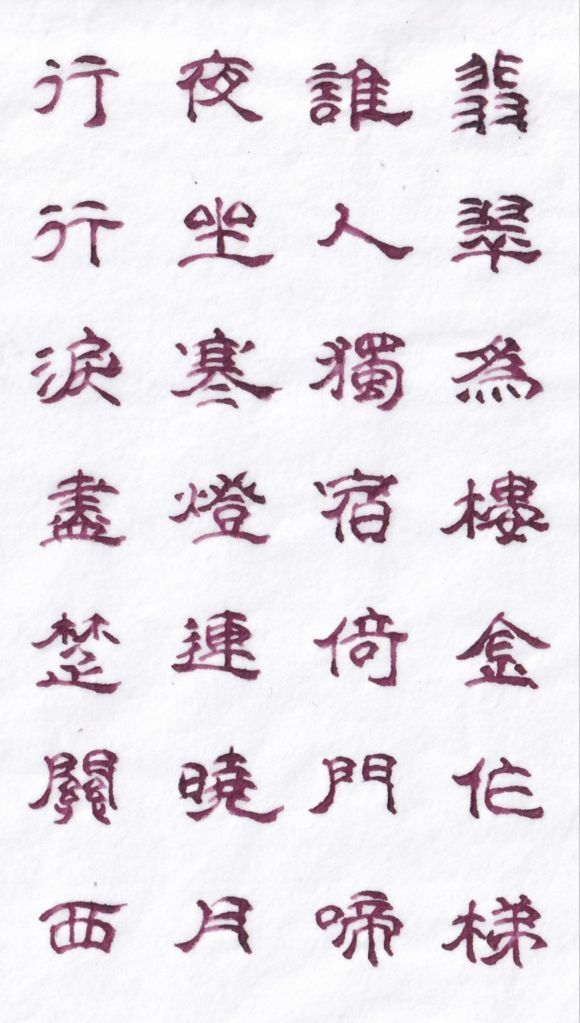 翡翠爲樓金作梯
誰人獨宿倚門啼
夜坐寒燈連曉月
行行淚盡楚關西